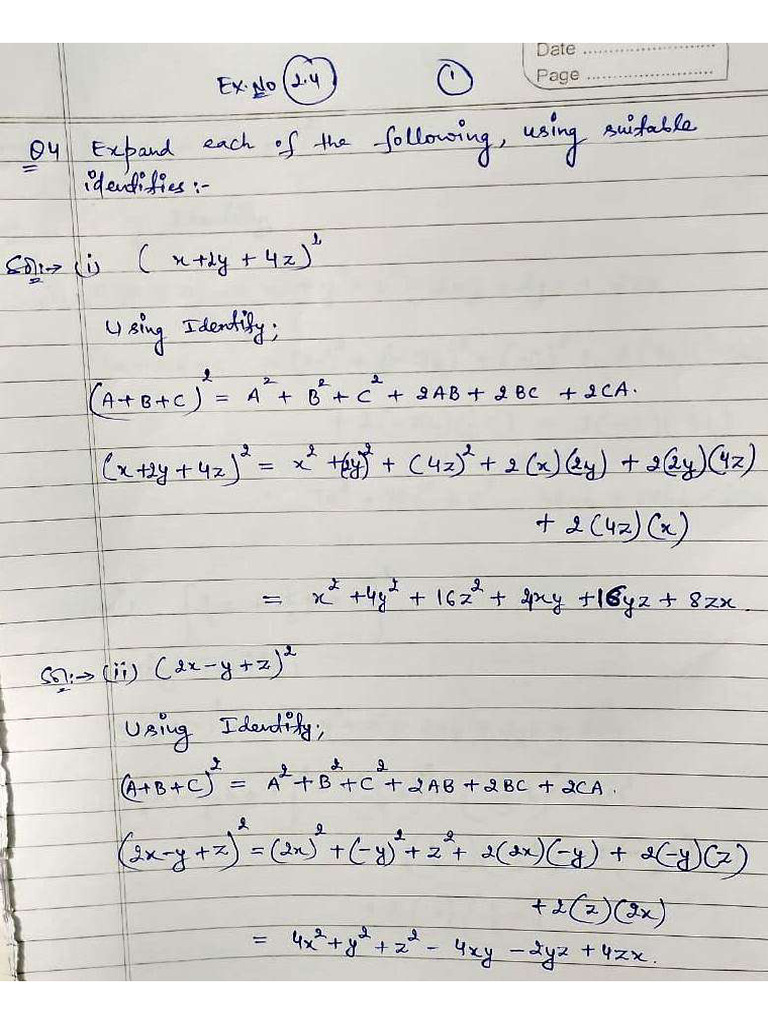 Date ........................
Page ........................
Ex. No 2.4 1
Q4 Expand each of the following, using suitable
identifies :-
Sol:→ (i) (x+2y + 4z)²
Using Identify;
(A+B+C)² = A² + B² + C² + 2AB + 2BC + 2CA.
(x+2y+4z)² = x² + (2y)² + (4z)² + 2(x)(2y) + 2(2y)(4z)
+ 2(4z)(x)
= x² + 4y² + 16z² + 4xy + 16yz + 8zx.
Sol:→ (ii) (2x-y+z)²
Using Identify;
(A+B+C)² = A² + B² + C² + 2AB + 2BC + 2CA.
(2x-y+z)² = (2x)² + (-y)² + z² + 2(2x)(-y) + 2(-y)(z)
+ 2(z)(2x)
= 4x² + y² + z² - 4xy - 2yz + 4zx.